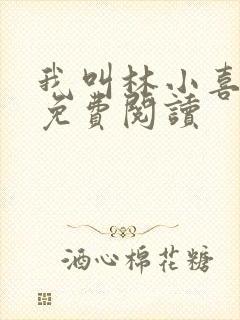 我叫林小喜
免費閱讀
酒心棉花糖